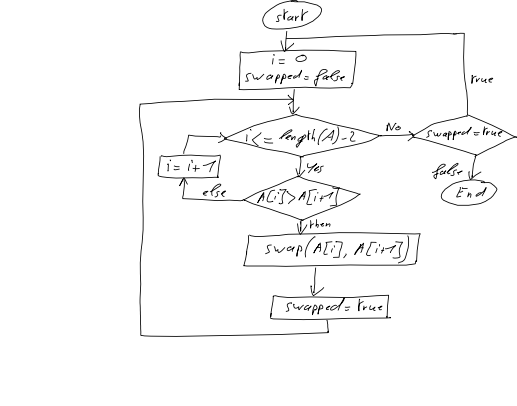 start
i = 0
swapped=false
true
i<= length(A)-2
No
swapped=true
Yes
i= i+1
false
End
else
A[i]>A[i+1]
then
swap(A[i], A[i+1])
swapped=true